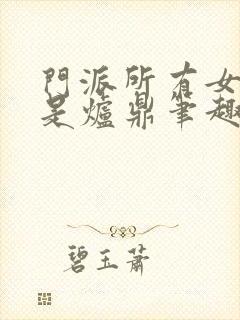 門派所有女
是爐鼎筆趣
碧玉蕭